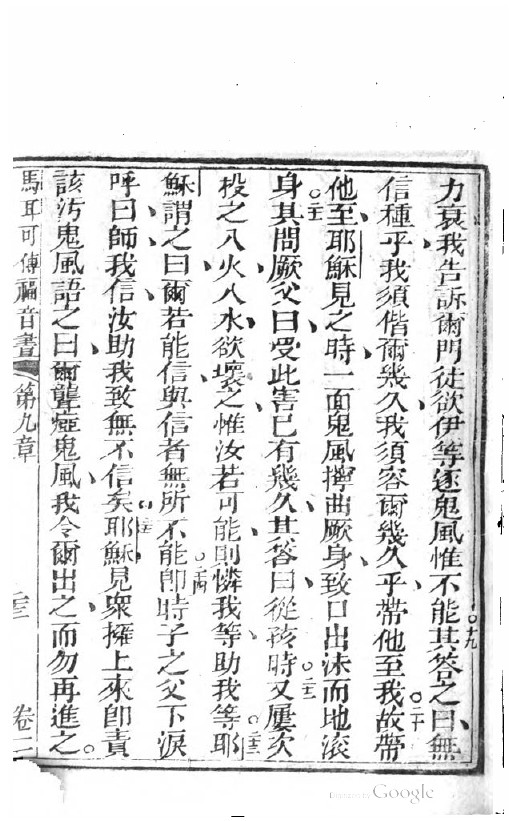 力衰我告訴爾門徒欲伊等逐鬼風惟不能其答之曰無
信種乎我須偕爾幾久我須容爾幾久乎帶他至我故帶
他至耶穌見之時一面鬼風擰曲厥身致口出沫而地滾
身其問厥父曰受此害已有幾久其答曰從孩時又屢次
投之入火入水欲壞之惟汝若可能則憐我等助我等耶
穌謂之曰爾若能信與信者無所不能即時子之父下淚
呼曰師我信汝助我致無不信矣耶穌見衆擁上來即責
該污鬼風語之曰爾聾瘂鬼風我令爾出之而勿再進之。
馬耳可傳福音書 第九章 卷二
Google